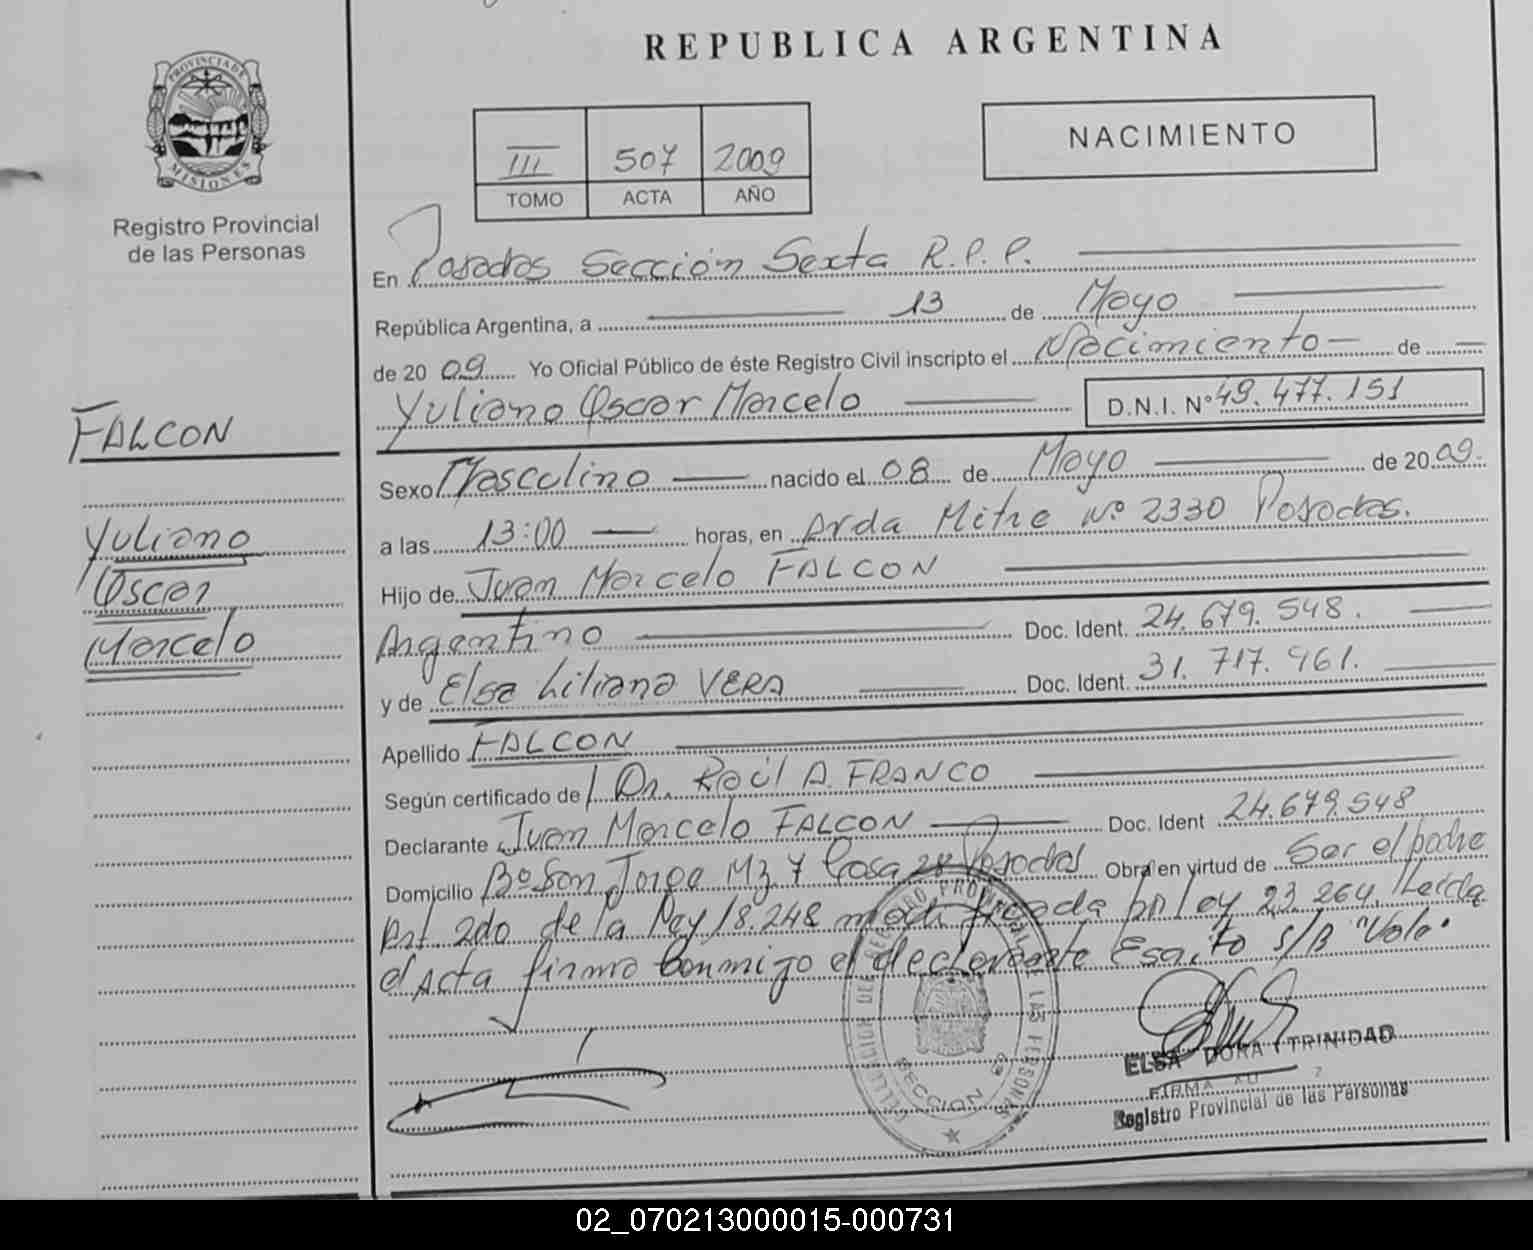 REPUBLICA ARGENTINA
PROVINCIA DE
MISIONES
Registro Provincial
de las Personas
III 507 2009
TOMO ACTA AÑO
NACIMIENTO
En Posadas Sección Sexta R.P.P.
República Argentina, a 13 de Mayo
de 2009 Yo Oficial Público de éste Registro Civil inscripto el Nacimiento de
Yuliano Oscar Marcelo D.N.I. N° 49.477.151
FALCON
Yuliano
Oscar
Marcelo
Sexo Masculino nacido el 08 de Mayo de 2009.
a las 13:00 horas, en Avda Mitre Nº 2330 Posadas.
Hijo de Juan Marcelo FALCON
Argentino Doc. Ident. 24.679.548.
y de Elsa Liliana VERA Doc. Ident. 31.717.961.
Apellido FALCON
Según certificado de Dr. Raúl A. FRANCO
Declarante Juan Marcelo FALCON Doc. Ident 24.679.548
Domicilio Bº San Jorge Mz. Y Casa 28 Posadas Obra en virtud de Ser el padre
Art 2do de la Ley 18.248 modificada por ley 23.264. Leida
el Acta firma conmigo el declarante Escrito S/B "Vale"
DELEGACION DEL REGISTRO PROVINCIAL DE LAS PERSONAS
SECCION 6ª
ELSA DORA TRINIDAD
FIRMA AU
Registro Provincial de las Personas
02_070213000015-000731